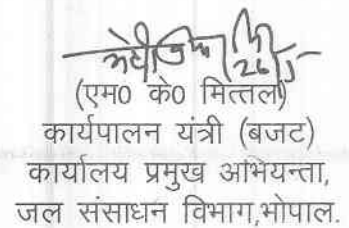 (एम0 के0 मित्तल)
कार्यपालन यंत्री (बजट)
कार्यालय प्रमुख अभियन्ता,
जल संसाधन विभाग,भोपाल.